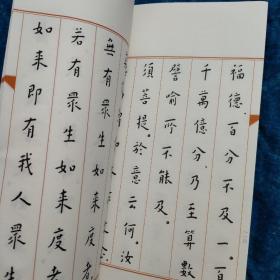 福德。百分不及一。百
千萬億分。乃至算數
譬喻所不能及。
須菩提。於意云何。汝
無有眾生如來度者
若有眾生如來度者
如來即有我人眾生